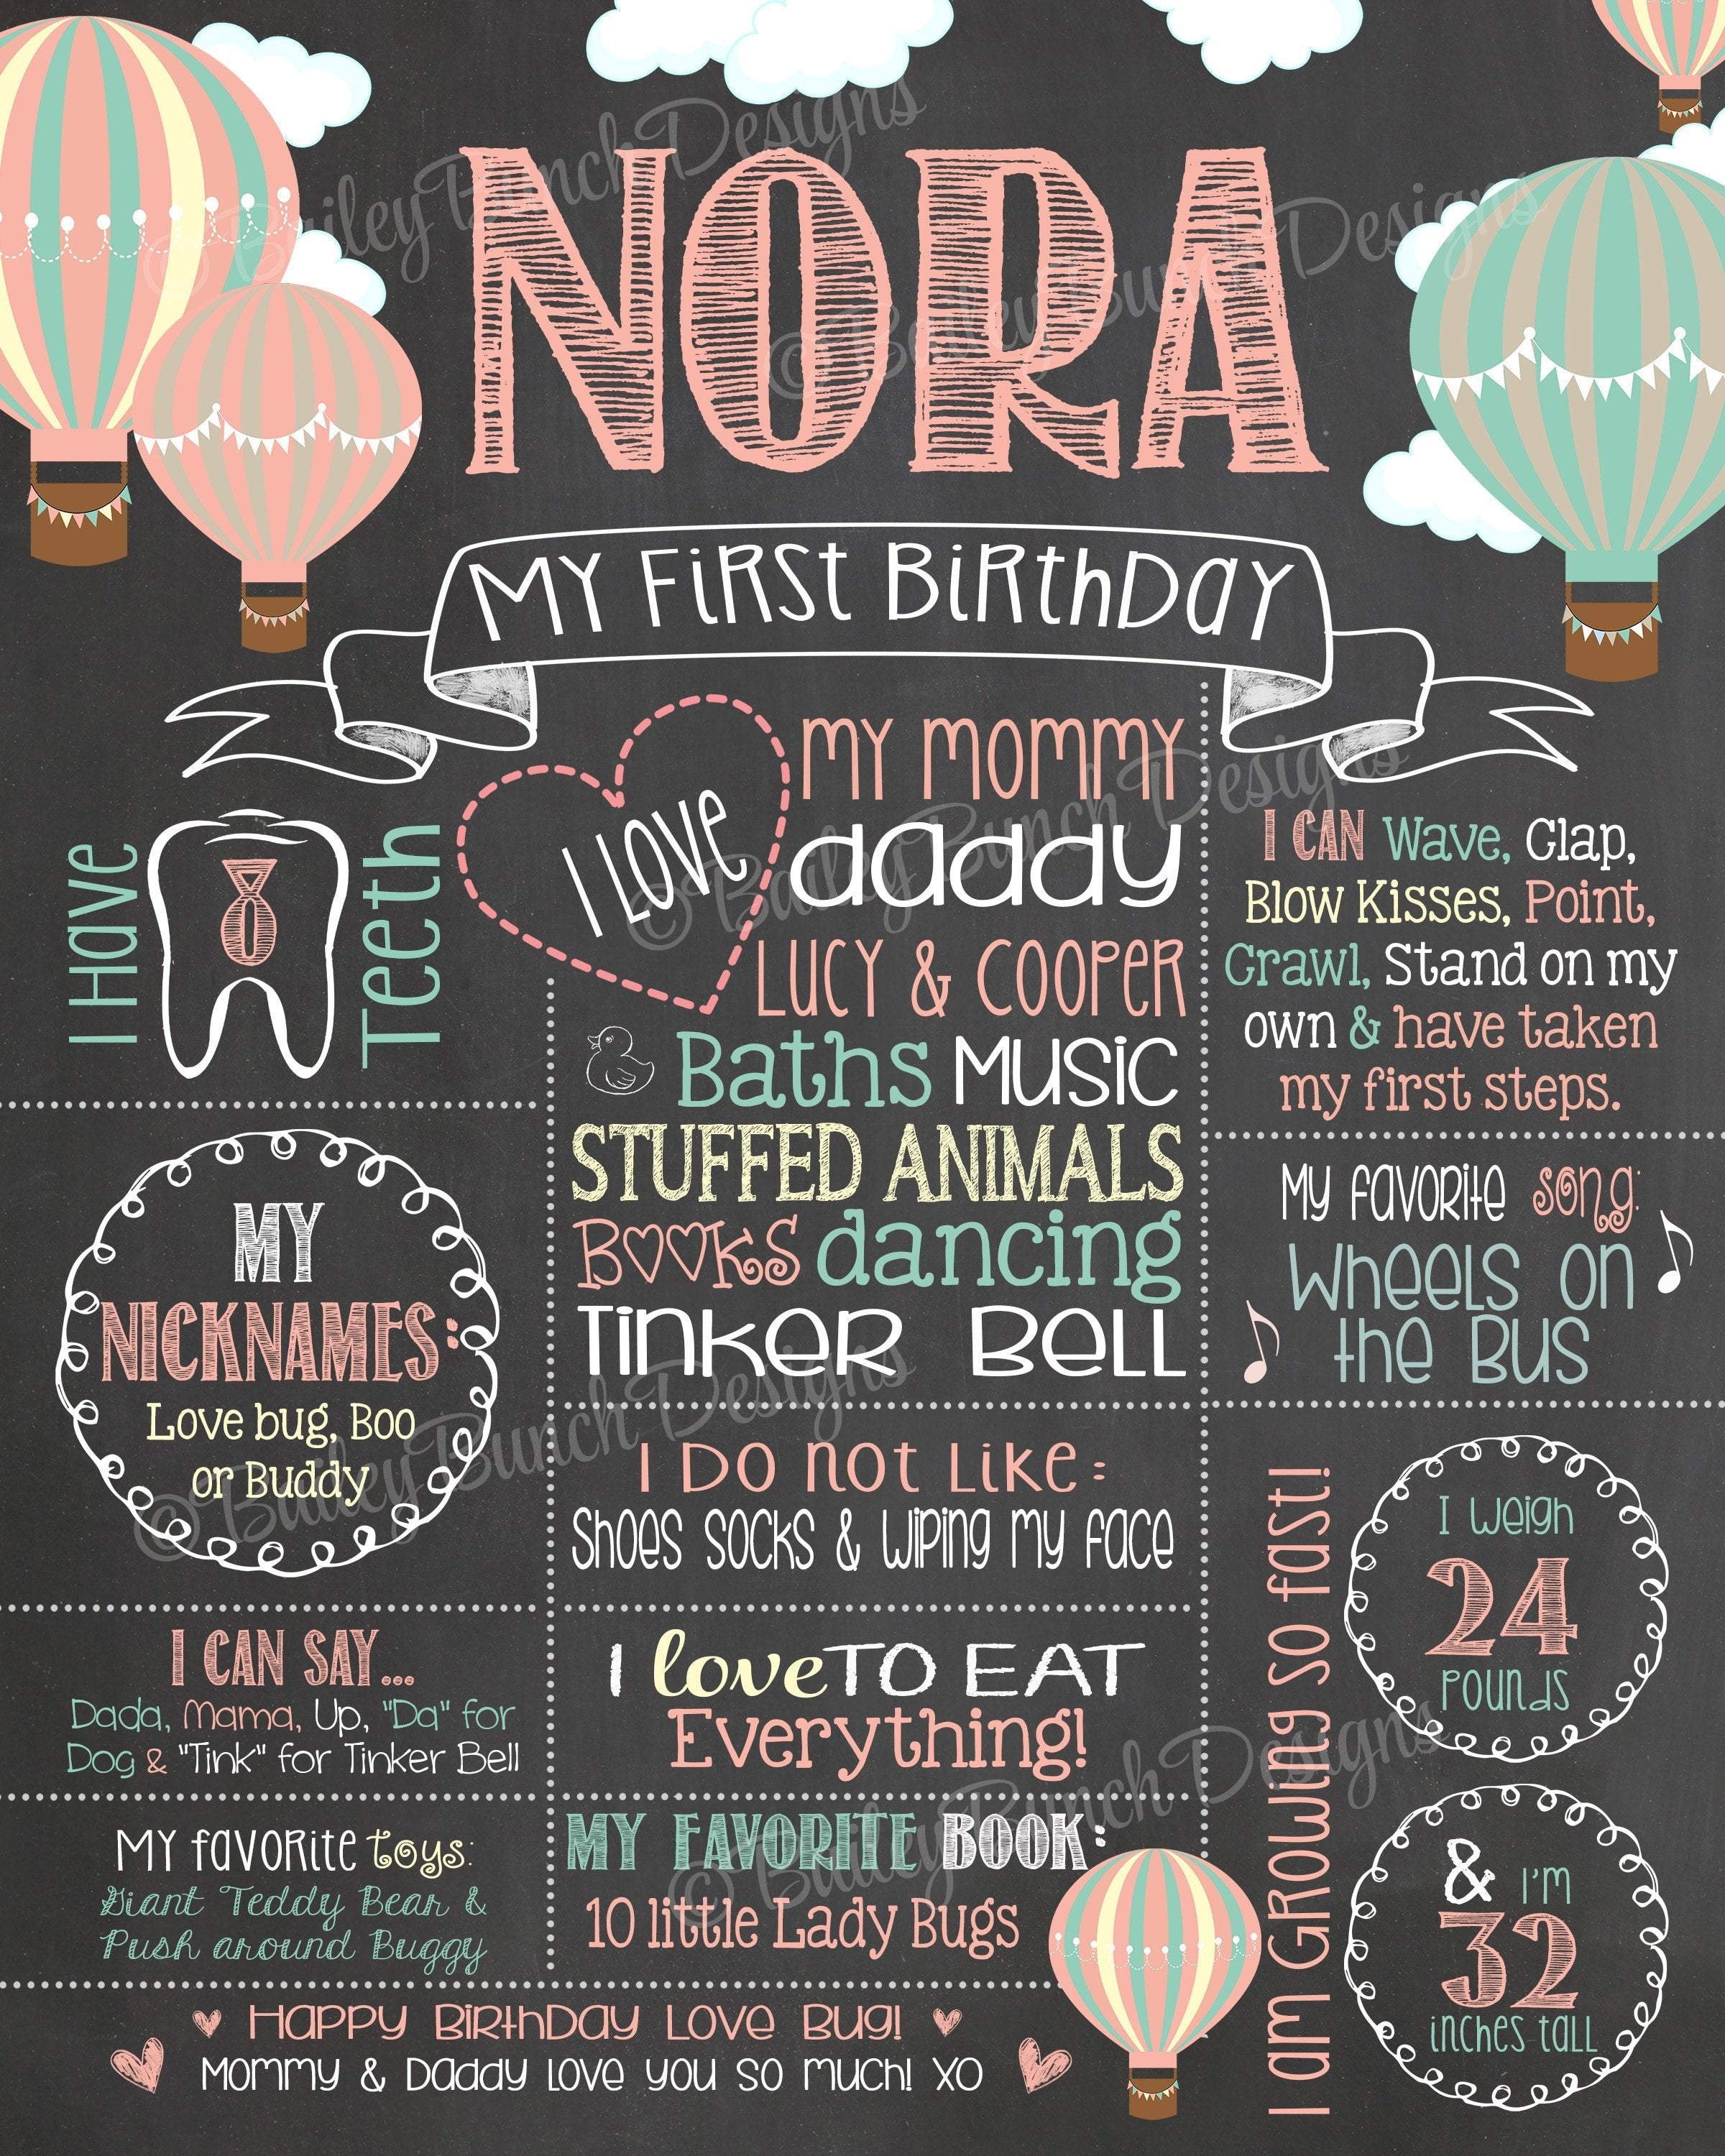 NORA
MY FIRST BIRTHDAY
I Have
8
Teeth
I LOVE
MY MOMMY
daddy
LUCY & COOPER
Baths MUSIC
STUFFED ANIMALS
BOOKS dancing
TINKER BELL
I CAN Wave, Clap,
Blow Kisses, Point,
Crawl, Stand on my
own & have taken
my first steps.
MY
NICKNAMES:
Love bug, Boo
or Buddy
My favorite song:
Wheels on
the Bus
I Do not Like:
Shoes socks & wiping my face
I CAN SAY...
Dada, Mama, Up, "Da" for
Dog & "Tink" for Tinker Bell
I love TO EAT
Everything!
I am Growing so fast!
I weigh
24
pounds
& I'm
32
inches tall
MY favorite toys:
Giant Teddy Bear &
Push around Buggy
MY FAVORITE BOOK:
10 little Lady Bugs
Happy Birthday Love Bug!
Mommy & Daddy love you so much! XO
© Bailey Bunch Designs
© Bailey Bunch Designs
© Bailey Bunch Designs
© Bailey Bunch Designs
© Bailey Bunch Designs